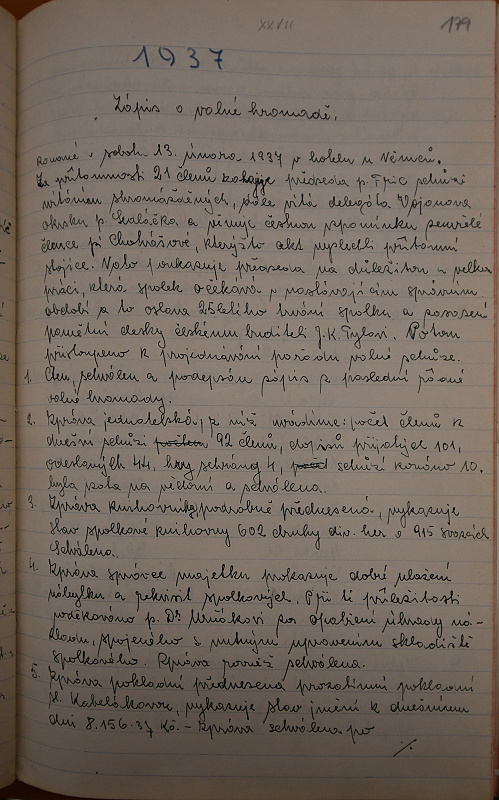 XXVII
179
1937
Zápis o valné hromadě,
konané v sobotu 13. února 1937 v hotelu u Němců.
Za přítomnosti 21 členů zahajuje předseda p. Fric schůzi
vítáním shromážděných, dále vítá delegáta Vojanova
okrsku p. Sedláčka a věnuje českou vzpomínku zemřelé
člence pí Chobrákové, kterýžto akt vyslechli přítomní
stojíce. Nato poukazuje předseda na důležitou a velkou
práci, která spolek očekává v nastávajícím správním
období a to oslava 25letého trvání spolku a zasazení
pamětní desky českému buditeli J. K. Tylovi. Potom
přistoupeno k projednávání pořadu valné schůze.
1. Čten, schválen a podepsán zápis z poslední řádné
valné hromady.
2. Zpráva jednatelská, z níž uvádíme: počet členů k
dnešní schůzi 92 členů, dopisů přijatých 101,
odeslaných 44, hry sehrány 4, schůzí konáno 10,
byla vzata na vědomí a schválena.
3. Zpráva knihovníka podrobně přednesená, vykazuje
stav spolkové knihovny 602 druhy div. her o 915 svazcích
schválena.
4. Zpráva správce majetku prokazuje dobré uložení
nábytku a rekvisit spolkových. Při té příležitosti
poděkováno p. Dr za opatření úhrady ná-
kladu, spojeného s nutným upravením skladiště
spolkového. Zpráva rovněž schválena.
5. Zpráva pokladní přednesená prozatímní pokladní
sl. Kabelákovou, vykazuje stav jmění k dnešnímu
dni 8.156.37 Kč. – Zpráva schválena po
./.